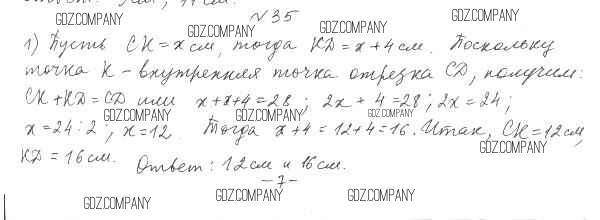 №35
1) Пусть СК = х см, тогда КD = х + 4 см. Поскольку
точка К – внутренняя точка отрезка CD, получим:
СК + КD = CD или х + х + 4 = 28; 2х + 4 = 28; 2х = 24;
х = 24 : 2; х = 12. Тогда х + 4 = 12 + 4 = 16. Итак, СК = 12 см,
КD = 16 см. Ответ: 12 см и 16 см.
– 7 –
GDZ.COMPANY
GDZ.COMPANY
GDZ.COMPANY
GDZ.COMPANY
GDZ.COMPANY
GDZ.COMPANY
GDZ.COMPANY
GDZ.COMPANY
GDZ.COMPANY
GDZ.COMPANY
GDZ.COMPANY